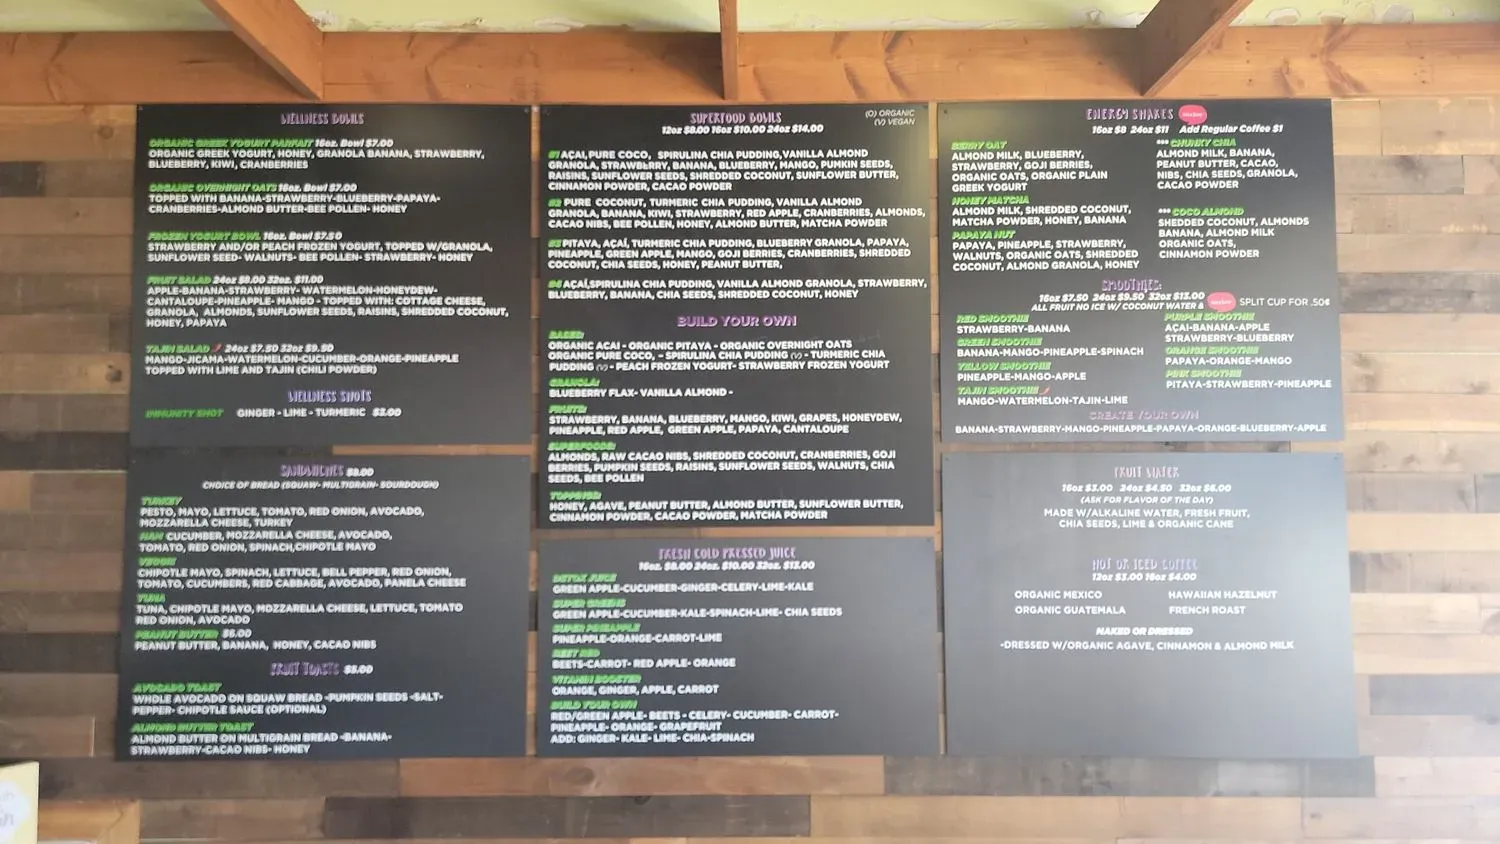 WELLNESS BOWLS
ORGANIC GREEK YOGURT PARFAIT 16oz. Bowl $7.00
ORGANIC GREEK YOGURT, HONEY, GRANOLA BANANA, STRAWBERRY,
BLUEBERRY, KIWI, CRANBERRIES
ORGANIC OVERNIGHT OATS 16oz. Bowl $7.00
TOPPED WITH BANANA-STRAWBERRY-BLUEBERRY-PAPAYA-
CRANBERRIES-ALMOND BUTTER-BEE POLLEN- HONEY
FROZEN YOGURT BOWL 16oz. Bowl $7.50
STRAWBERRY AND/OR PEACH FROZEN YOGURT, TOPPED W/GRANOLA,
SUNFLOWER SEED- WALNUTS- BEE POLLEN- STRAWBERRY- HONEY
FRUIT SALAD 24oz $8.00 32oz. $11.00
APPLE-BANANA-STRAWBERRY- WATERMELON-HONEYDEW-
CANTALOUPE-PINEAPPLE- MANGO - TOPPED WITH: COTTAGE CHEESE,
GRANOLA, ALMONDS, SUNFLOWER SEEDS, RAISINS, SHREDDED COCONUT,
HONEY, PAPAYA
TAJIN SALAD 24oz $7.50 32oz $9.50
MANGO-JICAMA-WATERMELON-CUCUMBER-ORANGE-PINEAPPLE
TOPPED WITH LIME AND TAJIN (CHILI POWDER)
WELLNESS SHOTS
IMMUNITY SHOT GINGER - LIME - TURMERIC $3.00
SANDWICHES $8.00
CHOICE OF BREAD (SQUAW- MULTIGRAIN- SOURDOUGH)
TURKEY
PESTO, MAYO, LETTUCE, TOMATO, RED ONION, AVOCADO,
MOZZARELLA CHEESE, TURKEY
HAM CUCUMBER, MOZZARELLA CHEESE, AVOCADO,
TOMATO, RED ONION, SPINACH,CHIPOTLE MAYO
VEGGIE
CHIPOTLE MAYO, SPINACH, LETTUCE, BELL PEPPER, RED ONION,
TOMATO, CUCUMBERS, RED CABBAGE, AVOCADO, PANELA CHEESE
TUNA
TUNA, CHIPOTLE MAYO, MOZZARELLA CHEESE, LETTUCE, TOMATO
RED ONION, AVOCADO
PEANUT BUTTER $6.00
PEANUT BUTTER, BANANA, HONEY, CACAO NIBS
FRUIT TOASTS $5.00
AVOCADO TOAST
WHOLE AVOCADO ON SQUAW BREAD -PUMPKIN SEEDS -SALT-
PEPPER- CHIPOTLE SAUCE (OPTIONAL)
ALMOND BUTTER TOAST
ALMOND BUTTER ON MULTIGRAIN BREAD -BANANA-
STRAWBERRY-CACAO NIBS- HONEY
SUPERFOOD BOWLS
(O) ORGANIC
(V) VEGAN
12oz $8.00 16oz $10.00 24oz $14.00
#1 AÇAI,PURE COCO, SPIRULINA CHIA PUDDING,VANILLA ALMOND
GRANOLA, STRAWBLERRY, BANANA, BLUEBERRY, MANGO, PUMKIN SEEDS,
RAISINS, SUNFLOWER SEEDS, SHREDDED COCONUT, SUNFLOWER BUTTER,
CINNAMON POWDER, CACAO POWDER
#2 PURE COCONUT, TURMERIC CHIA PUDDING, VANILLA ALMOND
GRANOLA, BANANA, KIWI, STRAWBERRY, RED APPLE, CRANBERRIES, ALMONDS,
CACAO NIBS, BEE POLLEN, HONEY, ALMOND BUTTER, MATCHA POWDER
#3 PITAYA, AÇAÍ, TURMERIC CHIA PUDDING, BLUEBERRY GRANOLA, PAPAYA,
PINEAPPLE, GREEN APPLE, MANGO, GOJI BERRIES, CRANBERRIES, SHREDDED
COCONUT, CHIA SEEDS, HONEY, PEANUT BUTTER,
#4 AÇAÍ,SPIRULINA CHIA PUDDING, VANILLA ALMOND GRANOLA, STRAWBERRY,
BLUEBERRY, BANANA, CHIA SEEDS, SHREDDED COCONUT, HONEY
BUILD YOUR OWN
BASES:
ORGANIC ACAI - ORGANIC PITAYA - ORGANIC OVERNIGHT OATS
ORGANIC PURE COCO, - SPIRULINA CHIA PUDDING (V) - TURMERIC CHIA
PUDDING (V) - PEACH FROZEN YOGURT- STRAWBERRY FROZEN YOGURT
GRANOLA:
BLUEBERRY FLAX- VANILLA ALMOND -
FRUITS:
STRAWBERRY, BANANA, BLUEBERRY, MANGO, KIWI, GRAPES, HONEYDEW,
PINEAPPLE, RED APPLE, GREEN APPLE, PAPAYA, CANTALOUPE
SUPERFOODS:
ALMONDS, RAW CACAO NIBS, SHREDDED COCONUT, CRANBERRIES, GOJI
BERRIES, PUMPKIN SEEDS, RAISINS, SUNFLOWER SEEDS, WALNUTS, CHIA
SEEDS, BEE POLLEN
TOPPINGS:
HONEY, AGAVE, PEANUT BUTTER, ALMOND BUTTER, SUNFLOWER BUTTER,
CINNAMON POWDER, CACAO POWDER, MATCHA POWDER
FRESH COLD PRESSED JUICE
16oz. $8.00 24oz. $10.00 32oz. $13.00
DETOX JUICE
GREEN APPLE-CUCUMBER-GINGER-CELERY-LIME-KALE
SUPER GREENS
GREEN APPLE-CUCUMBER-KALE-SPINACH-LIME- CHIA SEEDS
SUPER PINEAPPLE
PINEAPPLE-ORANGE-CARROT-LIME
BEET RED
BEETS-CARROT- RED APPLE- ORANGE
VITAMIN BOOSTER
ORANGE, GINGER, APPLE, CARROT
BUILD YOUR OWN
RED/GREEN APPLE- BEETS - CELERY- CUCUMBER- CARROT-
PINEAPPLE- ORANGE- GRAPEFRUIT
ADD: GINGER- KALE- LIME- CHIA-SPINACH
ENERGY SHAKES
16oz $8 24oz $11 Add Regular Coffee $1
BERRY OAT
ALMOND MILK, BLUEBERRY,
STRAWBERRY, GOJI BERRIES,
ORGANIC OATS, ORGANIC PLAIN
GREEK YOGURT
HONEY MATCHA
ALMOND MILK, SHREDDED COCONUT,
MATCHA POWDER, HONEY, BANANA
PAPAYA NUT
PAPAYA, PINEAPPLE, STRAWBERRY,
WALNUTS, ORGANIC OATS, SHREDDED
COCONUT, ALMOND GRANOLA, HONEY
*** CHUNKY CHIA
ALMOND MILK, BANANA,
PEANUT BUTTER, CACAO,
NIBS, CHIA SEEDS, GRANOLA,
CACAO POWDER
*** COCO ALMOND
SHEDDED COCONUT, ALMONDS
BANANA, ALMOND MILK
ORGANIC OATS,
CINNAMON POWDER
SMOOTHIES:
16oz $7.50 24oz $9.50 32oz $13.00
ALL FRUIT NO ICE W/ COCONUT WATER & SPLIT CUP FOR .50¢
RED SMOOTHIE
STRAWBERRY-BANANA
GREEN SMOOTHIE
BANANA-MANGO-PINEAPPLE-SPINACH
YELLOW SMOOTHIE
PINEAPPLE-MANGO-APPLE
TAJIN SMOOTHIE
MANGO-WATERMELON-TAJIN-LIME
PURPLE SMOOTHIE
AÇAI-BANANA-APPLE
STRAWBERRY-BLUEBERRY
ORANGE SMOOTHIE
PAPAYA-ORANGE-MANGO
PINK SMOOTHIE
PITAYA-STRAWBERRY-PINEAPPLE
CREATE YOUR OWN
BANANA-STRAWBERRY-MANGO-PINEAPPLE-PAPAYA-ORANGE-BLUEBERRY-APPLE
FRUIT WATER
16oz $3.00 24oz $4.50 32oz $6.00
(ASK FOR FLAVOR OF THE DAY)
MADE W/ALKALINE WATER, FRESH FRUIT,
CHIA SEEDS, LIME & ORGANIC CANE
HOT OR ICED COFFEE
12oz $3.00 16oz $4.00
ORGANIC MEXICO HAWAIIAN HAZELNUT
ORGANIC GUATEMALA FRENCH ROAST
NAKED OR DRESSED
-DRESSED W/ORGANIC AGAVE, CINNAMON & ALMOND MILK